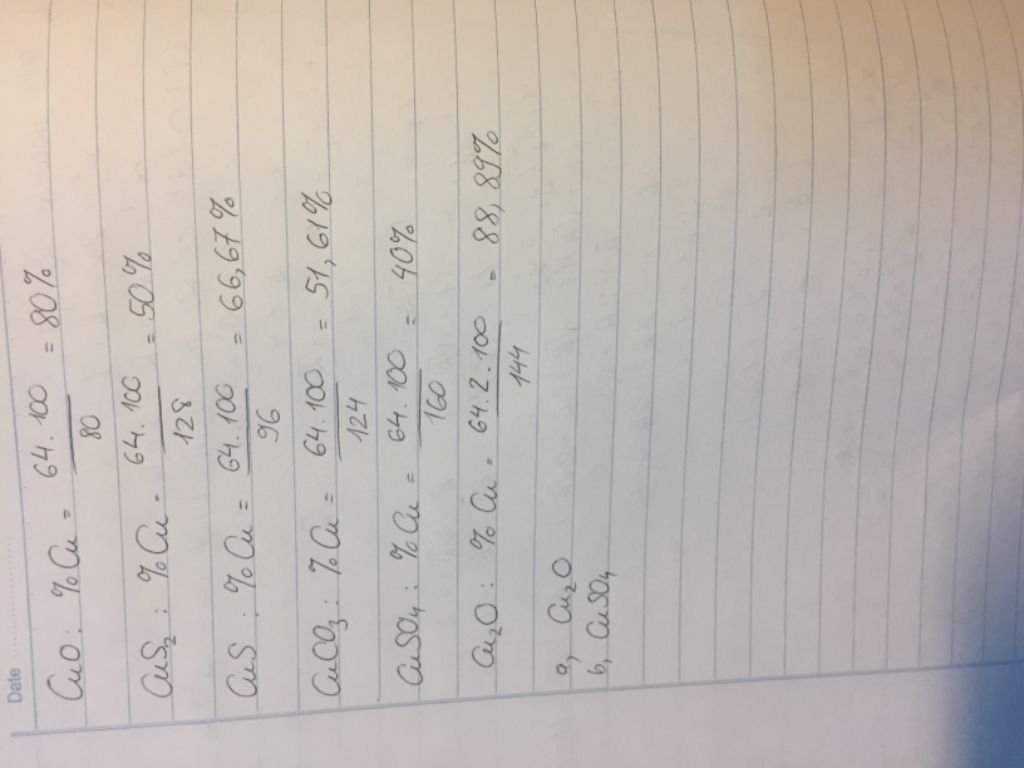 Date
CuO: %Cu = 64.100/80 = 80%
CuS₂: %Cu = 64.100/128 = 50%
CuS: %Cu = 64.100/96 = 66,67%
CuCO₃: %Cu = 64.100/124 = 51,61%
CuSO₄: %Cu = 64.100/160 = 40%
Cu₂O: %Cu = 64.2.100/144 = 88,89%
a, Cu₂O
b, CuSO₄